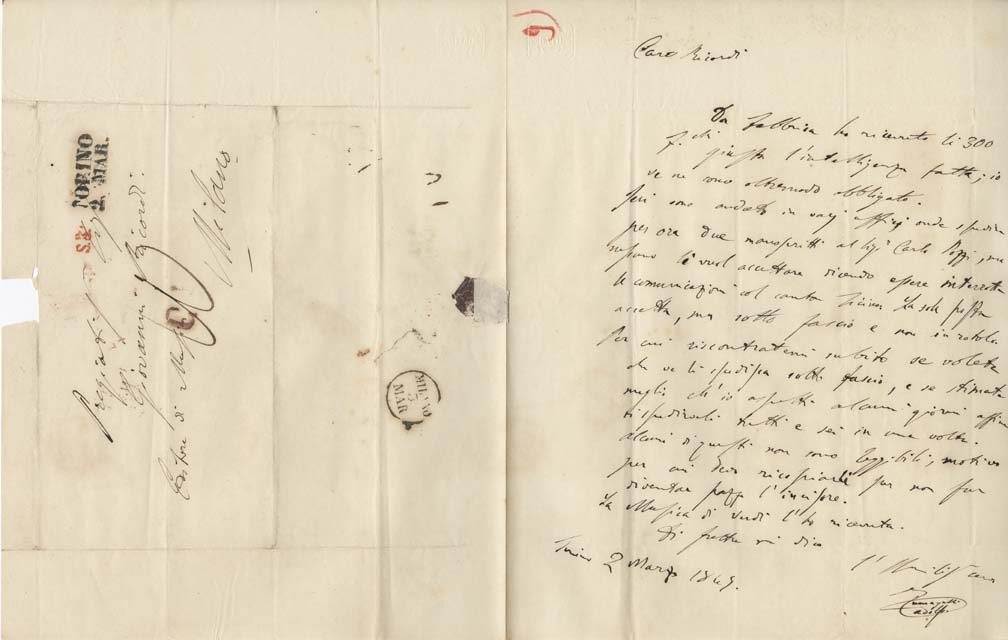 Caro Ricordi
Da Fabbrica ho ricevuto li 300
f.chi giusta l'intelligenza fatta; io
ve ne sono oltremodo obbligato.
Jeri sono andato in varj Uffizj onde spedire
per ora due manoscritti al Sig.r Carlo Pozzi, ma
nessuno li vuol accettare dicendo essere interrotta
le comunicazioni col canton Ticino. La sola posta
accetta, ma sotto fascio e non in rotolo.
Per cui riscontratemi subito se volete
che ve li spedisca sotto fascio, e se stimate
meglio ch'io aspetti alcuni giorni affine
rispedirveli tutti e sei in una volta.
alcuni di questi non sono leggibili, motivo
per cui devo ricopiarli per non far
diventar pazzo l'incisore.
La Musica di Verdi l'ho ricevuta.
Di fretta vi dico
Torino 2 Marzo 1849.
l'
Fumagalli
Adolfo
TORINO
2 MAR.
Giovanni Ricordi
Editore di Musica
Milano
MILANO
MAR